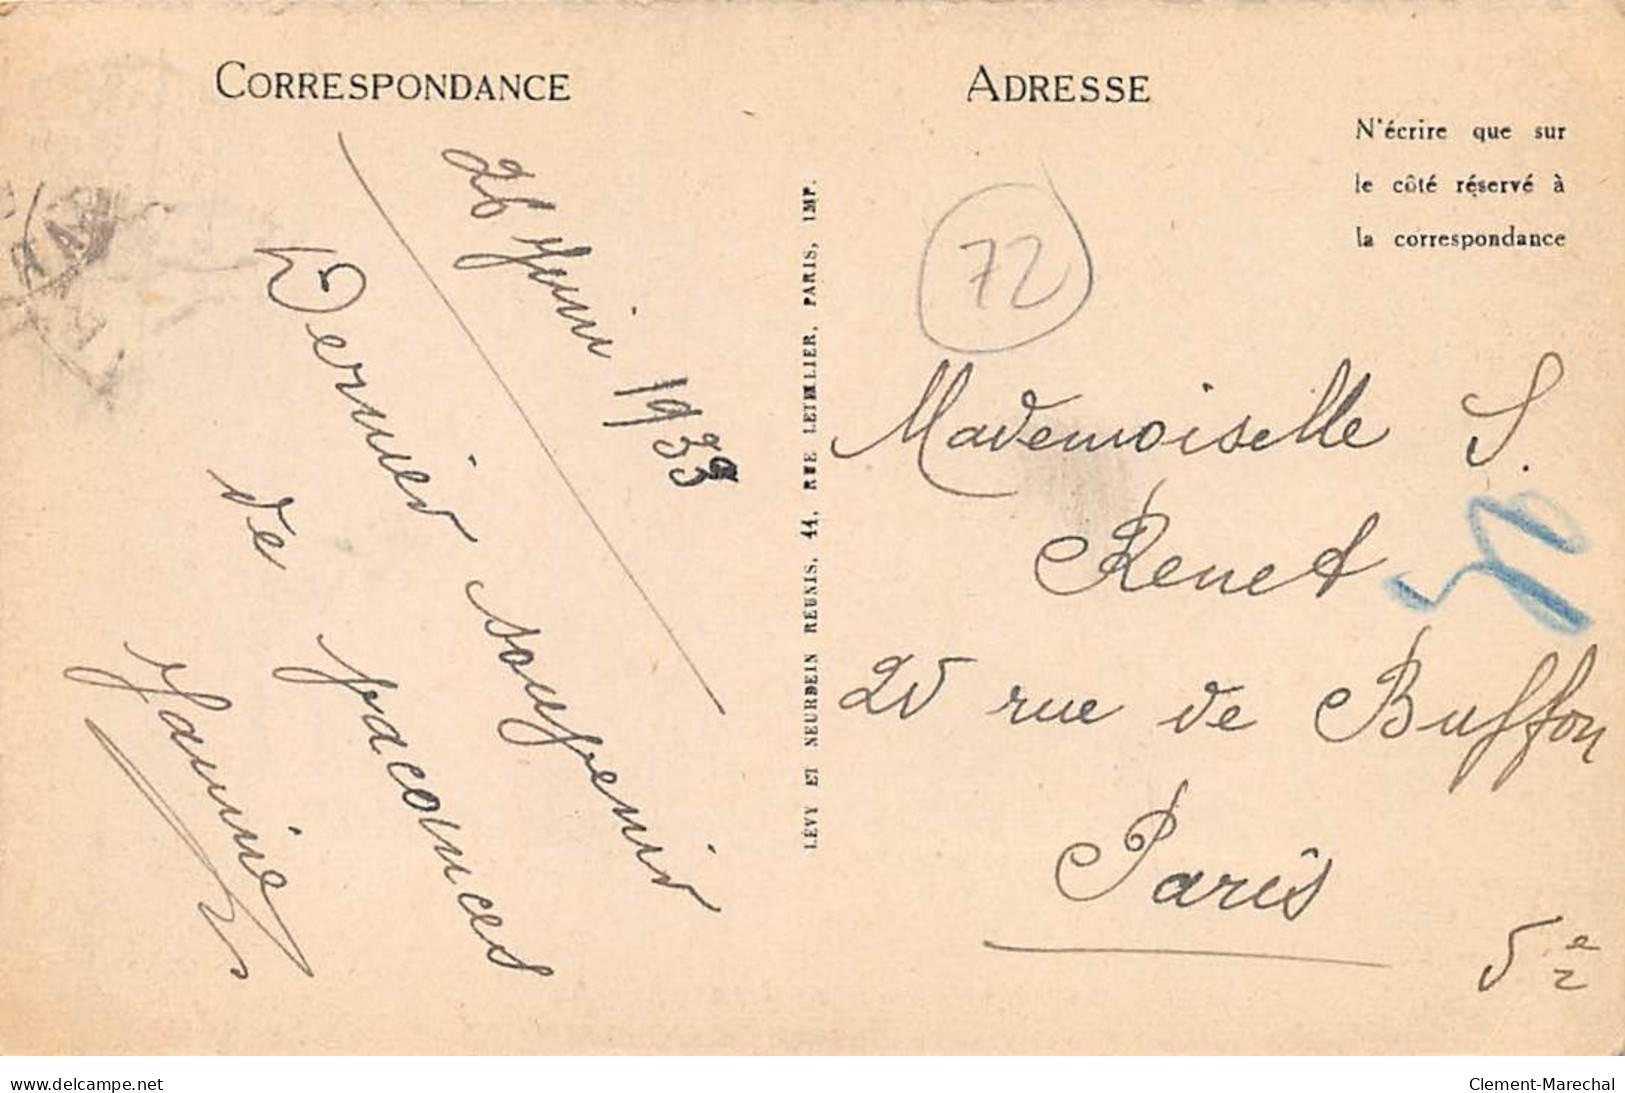 CORRESPONDANCE
26 Juin 1933
Dernier souvenir
de Jacouces
Jannie
LÉVY ET NEURDEIN RÉUNIS, 44, RUE LETELLIER, PARIS, IMP.
ADRESSE
N'écrire que sur
le côté réservé à
la correspondance
72
Mademoiselle S.
Renet
20 rue de Buffon
Paris
5e
www.delcampe.net
Clement-Marechal